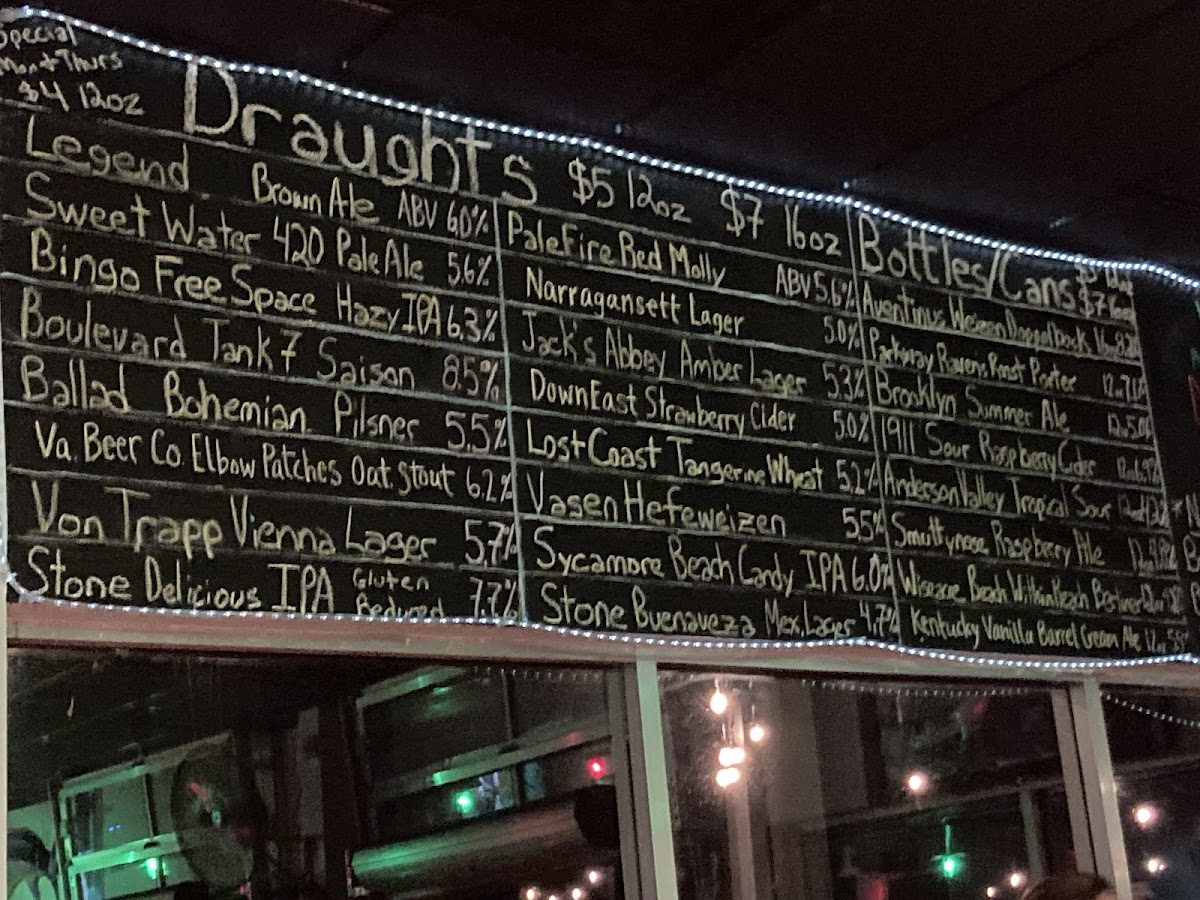 Special
Mon + Thurs
$4 12oz
Draughts $5 12oz $7 16oz
Legend Brown Ale ABV 6.0%
Sweet Water 420 Pale Ale 5.6%
Bingo Free Space Hazy IPA 6.3%
Boulevard Tank 7 Saison 8.5%
Ballad Bohemian Pilsner 5.5%
Va. Beer Co. Elbow Patches Oat. Stout 6.2%
Von Trapp Vienna Lager 5.7%
Stone Delicious IPA Gluten Reduced 7.7%
Pale Fire Red Molly ABV 5.6%
Narragansett Lager 5.0%
Jack's Abbey Amber Lager 5.3%
DownEast Strawberry Cider 5.0%
Lost Coast Tangerine Wheat 5.2%
Vasen Hefeweizen 5.5%
Sycamore Beach Candy IPA 6.0%
Stone Buenaveza Mex. Lager 4.7%
Bottles/Cans $7 16oz
Aventinus Weizen
Parkway Ravens Roost Porter
Brooklyn Summer Ale
1911 Sour Raspberry Cider
Anderson Valley Tropical Sour
Smuttynose Raspberry Ale
Wiseacre Beach Within Reach
Kentucky Vanilla Barrel Cream Ale